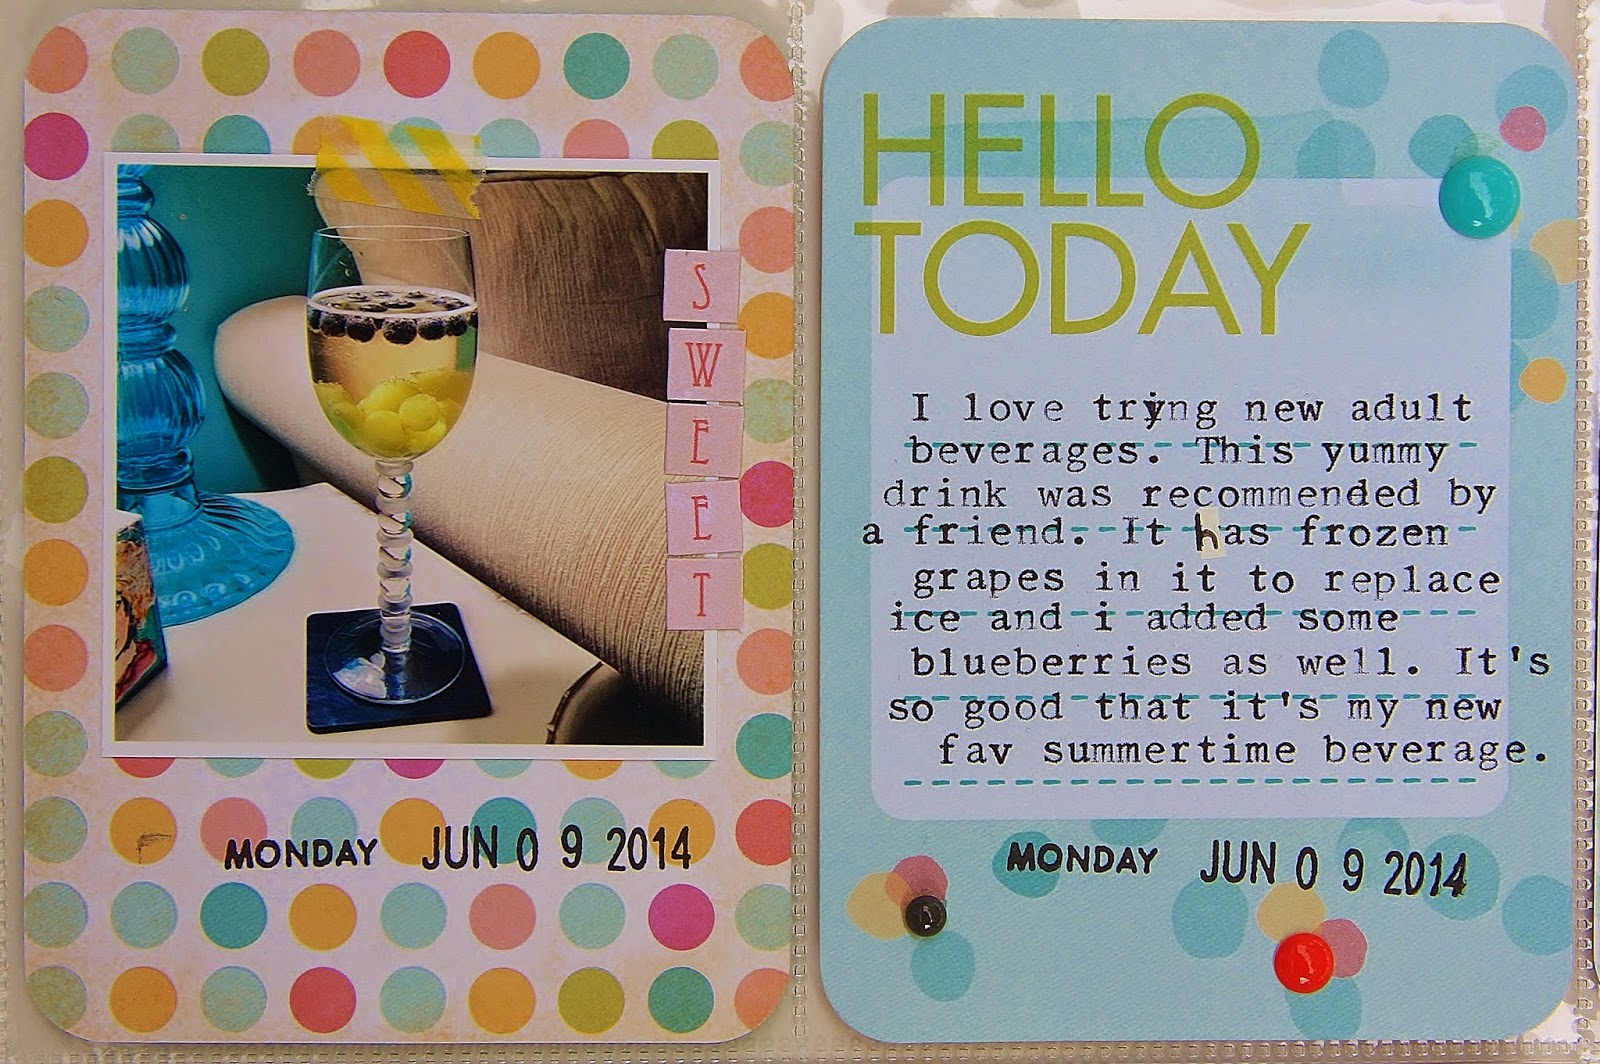 SWEET
MONDAY JUN 09 2014
HELLO
TODAY
I love tryng new adult
beverages. This yummy
drink was recommended by
a friend. It has frozen
grapes in it to replace
ice and i added some
blueberries as well. It's
so good that it's my new
fav summertime beverage.
MONDAY JUN 09 2014